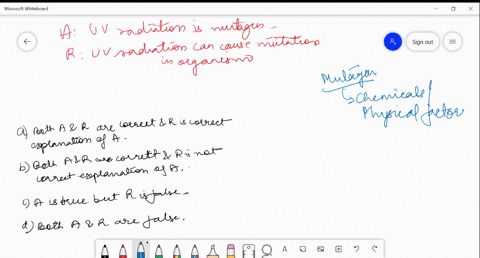 Microsoft Whiteboard
Sign out
A: UV radiation is mutagen
R: UV radiation can cause mutation
in organism
Mutagen
Chemicals/
Physical factor
a) Both A & R are correct & R is correct
explanation of A.
b) Both A & R are correct & R is not
correct explanation of A.
c) A is true but R is false.
d) Both A & R are false.